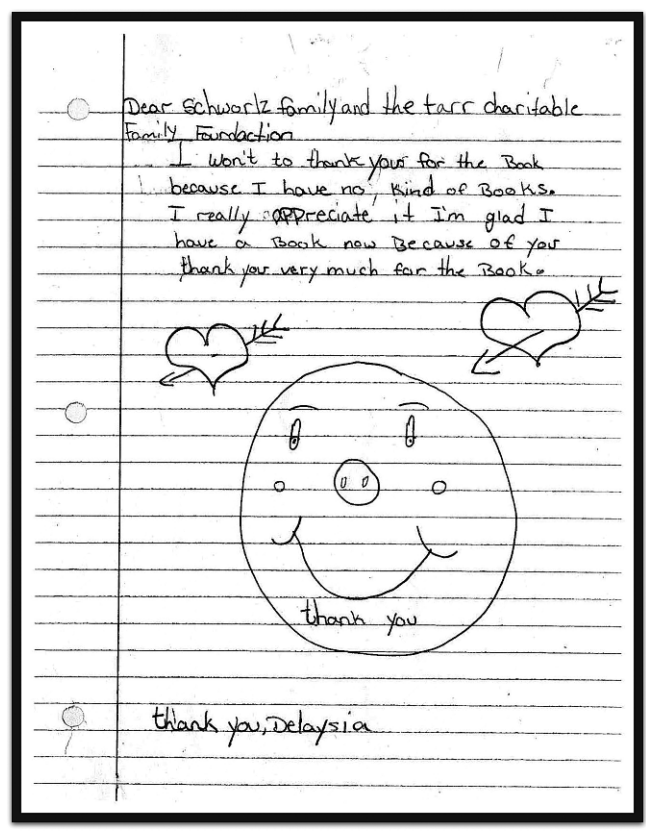 Dear Schwartz family and the tarr charitable
Family Foundaction
I won't to thank your for the Book
because I have no, Kind of Books.
I really appreciate it I'm glad I
have a Book now Because of you
thank you very much for the Book.
thank you
thank you, Delaysia